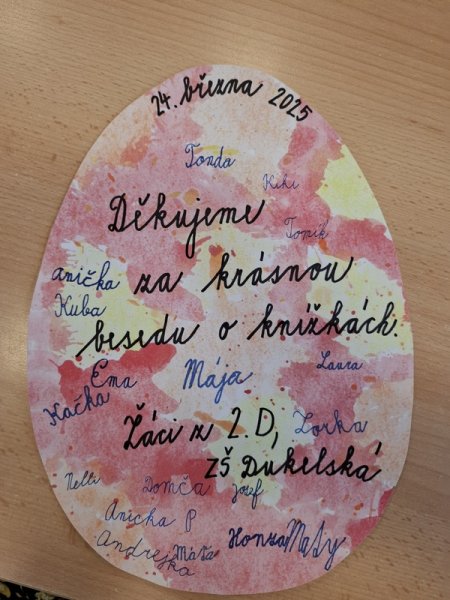 24. března 2025
Tonda
Kiki
Děkujeme
Toník
Anička za krásnou
Kuba
besedu o knížkách.
Ema Mája Laura
Kačka
Žáci z 2.D, Lorka
ZŠ Dukelská
Nelli Domča Jozef
Anicka P
Honza Maty
Andrejka Máťa